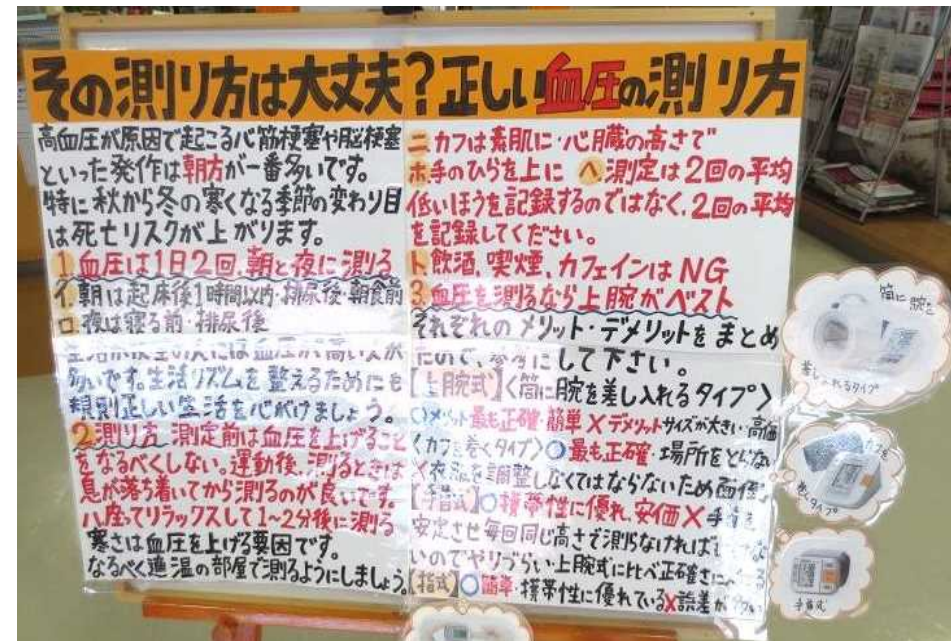 その測り方は大丈夫？正しい血圧の測り方
高血圧が原因で起こる心筋梗塞や脳梗塞
といった発作は朝方が一番多いです。
特に秋から冬の寒くなる季節の変わり目
は死亡リスクが上がります。
1.血圧は1日2回、朝と夜に測る
イ.朝は起床後1時間以内・排尿後・朝食前
ロ.夜は寝る前・排尿後
には血圧が高い人が
多いです。生活リズムを整えるためにも
規則正しい生活を心がけましょう。
2.測り方 測定前は血圧を上げること
をなるべくしない。運動後、測るときは
息が落ち着いてから測るのが良いです。
ハ.座ってリラックスして1~2分後に測る
寒さは血圧を上げる要因です。
なるべく適温の部屋で測るようにしましょう。
ニ.カフは素肌に・心臓の高さで
ホ.手のひらを上に ヘ.測定は2回の平均
低いほうを記録するのではなく、2回の平均
を記録してください。
ト.飲酒、喫煙、カフェインはNG
3.血圧を測るなら上腕がベスト
それぞれのメリット・デメリットをまとめ
たので、参考にして下さい。
【上腕式】〈筒に腕を差し入れるタイプ〉
○メリット最も正確・簡単×デメリットサイズが大きい・高価
〈カフを巻くタイプ〉○最も正確・場所をとらない
×衣服を調整しなくてはならないため面倒
【手首式】○携帯性に優れ、安価×手首を
安定させ毎回同じ高さで測らなければ
いのでやりづらい・上腕式に比べ正確さに
【指式】○簡単・携帯性に優れている×誤差が
筒に腕を
差し入れるタイプ
カフを
巻くタイプ
手首式